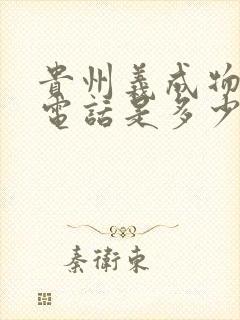 貴州義成物
電話是多少
秦衛東